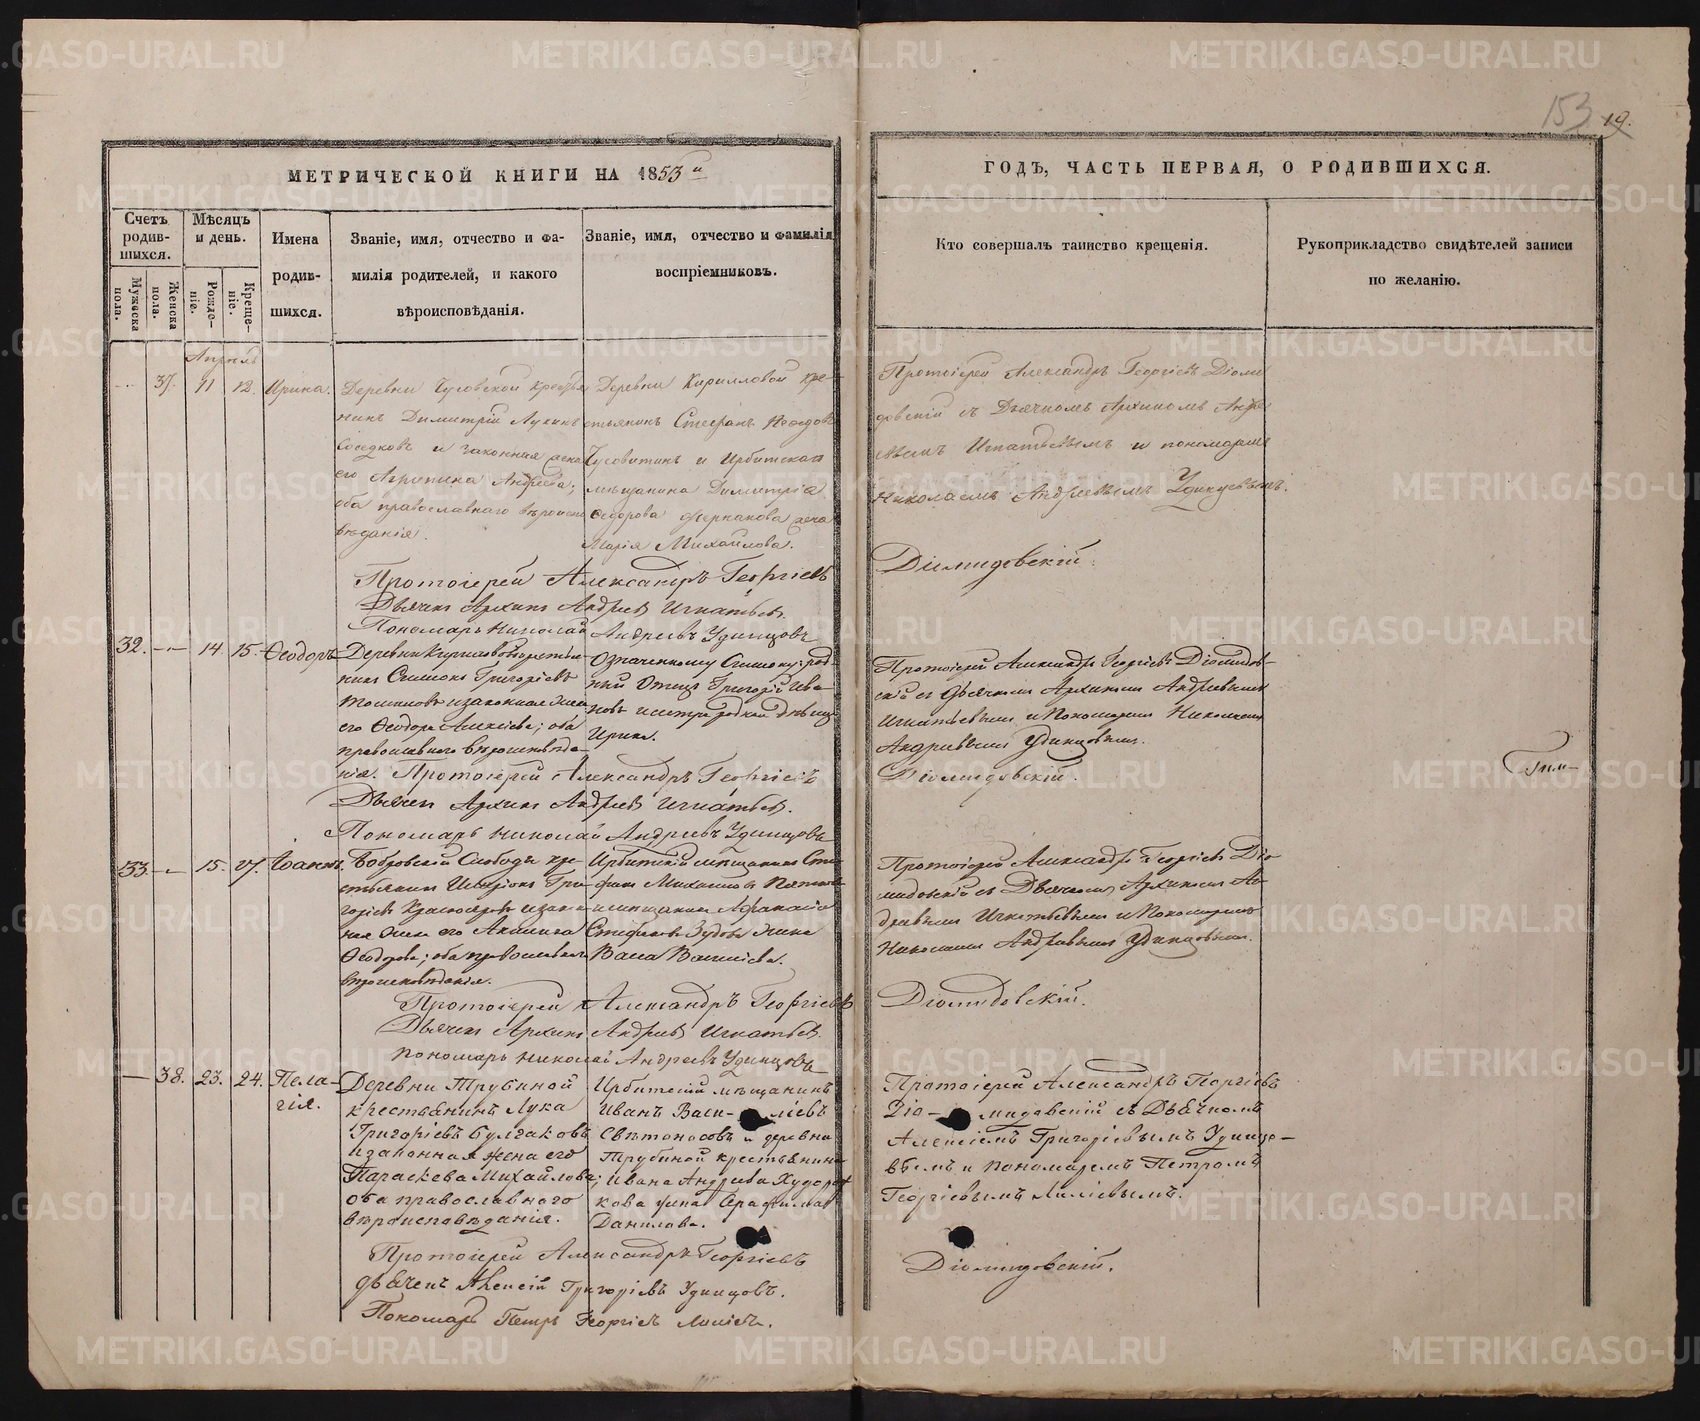 153 19.
МЕТРИЧЕСКОЙ КНИГИ НА 1853й
ГОДЪ, ЧАСТЬ ПЕРВАЯ, О РОДИВШИХСЯ.
Счетъ родив-шихся.
Мужеска пола.
Женска пола.
Мѣсяцъ и день.
Рожде-ніе.
Креще-ніе.
Имена
родив-
шихся.
Званіе, имя, отчество и фа-
милія родителей, и какого
вѣроисповѣданія.
Званіе, имя, отчество и фамилія
воспріемниковъ.
Кто совершалъ таинство крещенія.
Рукоприкладство свидѣтелей записи
по желанію.
Апрель
37. 11. 12. Ирина.
Деревни Чусовской кресть
нинъ Димитрій Лукинъ
Соседковъ и законная жена
его Агрипина Андреева;
оба православнаго вѣроиспо
вѣданія.
Деревни Кирилловой кре-
стьянинъ Стефанъ
Чусовитинъ и Ирбитскаго
мѣщанина Димитрія
Ѳеодорова жена
Марія Михайлова.
Протоіерей Александръ Георгіевъ Діоми
довскій съ Дьячкомъ Архипомъ Андре
евымъ Игнатьевымъ и пономаремъ
Николаемъ Андреевымъ Удинцевымъ.
Діомидовскій.
Протоіерей Александръ Георгіевъ
Дьячекъ Архипъ Андреевъ Игнатьевъ.
Пономарь Николай Андреевъ Удинцовъ
32. — 14. 15. Ѳеодоръ
Деревни Кирилловой крестья-
нинъ Симеонъ Григорьевъ
и законная жена
его Ѳеодора Алексіева; оба
православнаго вѣроисповѣда-
нія.
Означенному Симеону род-
ный Отецъ Григорій Ива-
новъ и сестра родная дѣвица
Ирина.
Протоіерей Александръ Георгіевъ Діомидов-
скій съ Дьячкомъ Архипомъ Андреевымъ
Игнатьевымъ и Пономаремъ Николаемъ
Андреевымъ Удинцовымъ.
Діомидовскій.
Протоіерей Александръ Георгіевъ
Дьячекъ Архипъ Андреевъ Игнатьевъ.
Пономарь Николай Андреевъ Удинцовъ
33. — 15. 17. Іоаннъ.
Бобровской Слободы кре-
стьянинъ Иларіонъ Гри-
горіевъ Красноперовъ и закон
ная жена его Акилина
Ѳеодорова; оба православнаго
вѣроисповѣданія.
Ирбитскій мѣщанинъ Сте
фанъ Михаиловъ
и мѣщанина Афанасія
Стефанова Зубова жена
Васса Васильева.
Протоіерей Александръ Георгіевъ Діо
мидовскій съ Дьячкомъ Архипомъ Ан
дреевымъ Игнатьевымъ и Пономаремъ
Николаемъ Андреевымъ Удинцовымъ.
Діомидовскій.
Протоіерей Александръ Георгіевъ
Дьячекъ Архипъ Андреевъ Игнатьевъ.
Пономарь Николай Андреевъ Удинцовъ
— 38. 23. 24. Пела-
гія.
Деревни Трубиной
крестьянинъ Лука
Григоріевъ Булгаковъ
и законная жена его
Параскева Михайлова;
оба православнаго
вѣроисповѣданія.
Ирбитскій мѣщанинъ
Иванъ Васи-ліевъ
Свѣтоносовъ и деревни
Трубиной крестьянина
Ивана Андреева Худоро
кова жена Серафима
Данилова.
Протоіерей Александръ Георгіевъ
Діо-мидовскій съ Дьячкомъ
Алексіемъ Григоріевымъ Удинцо-
вымъ и пономаремъ Петромъ
Георгіевымъ
Діомидовскій.
Протоіерей Александръ Георгіевъ
дьячекъ Алексій Григоріевъ Удинцовъ.
Пономарь Петръ Георгіевъ
METRIKI.GASO-URAL.RU